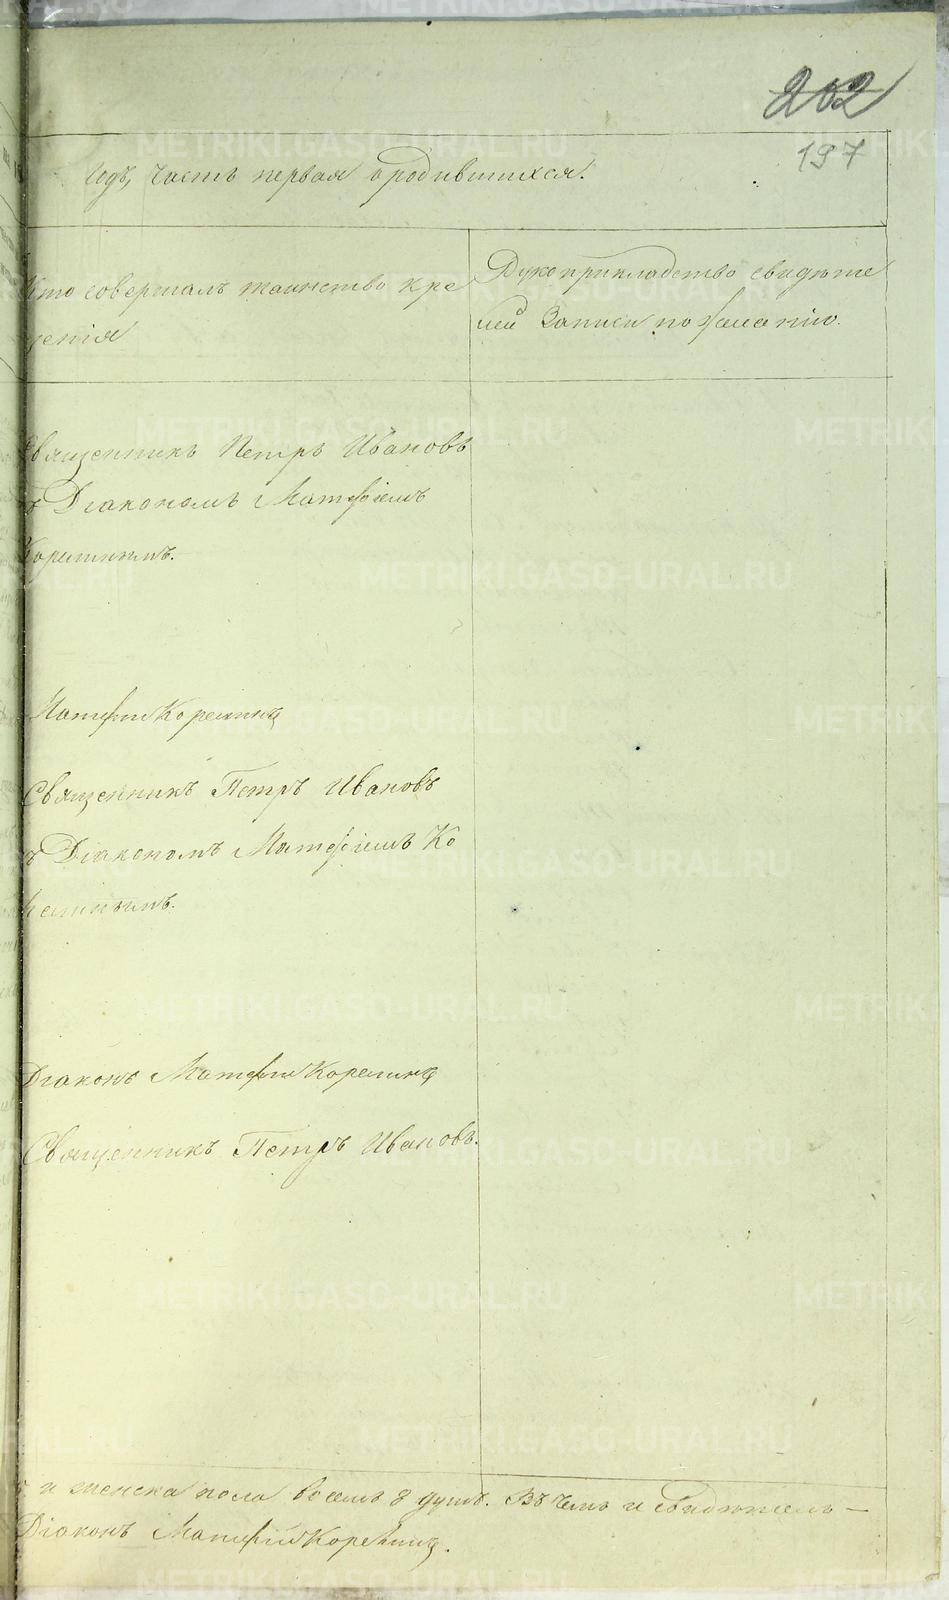 202
197
Годъ, Часть первая о родившихся.
Кто совершалъ таинство кре
щенія
Рукоприкладство свидѣте
лей Записи по желанію.
Священникъ Петръ Ивановъ
съ Діакономъ Матфіемъ
Корелинымъ.
Матфій Корелинъ
Священникъ Петръ Ивановъ
съ Діакономъ Матфіемъ Ко
релинымъ.
Діаконъ Матфій Корелинъ
Священникъ Петръ Ивановъ.
и женска пола восемь 8 душъ. Въ чемъ и свидѣтель—
Діаконъ Матфій Корелинъ.
METRIKI.GASO-URAL.RU